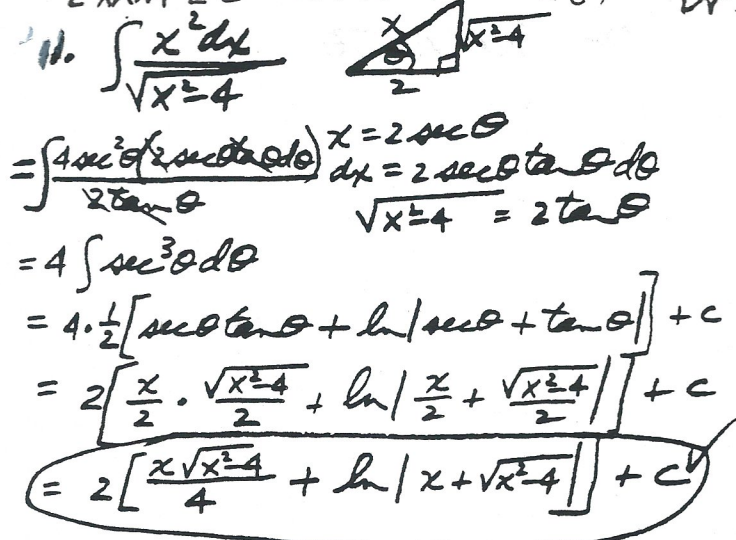 11. ∫ x² dx / √(x²-4)
x √(x²-4) θ 2
= ∫ 4sec²θ(2secθtanθdθ) / 2tanθ
x = 2secθ
dx = 2secθtanθdθ
√(x²-4) = 2tanθ
= 4 ∫ sec³θdθ
= 4·½[secθtanθ + ln|secθ + tanθ|] + c
= 2[x/2 · √(x²-4)/2 + ln|x/2 + √(x²-4)/2|] + c
= 2[x√(x²-4)/4 + ln|x + √(x²-4)|] + c